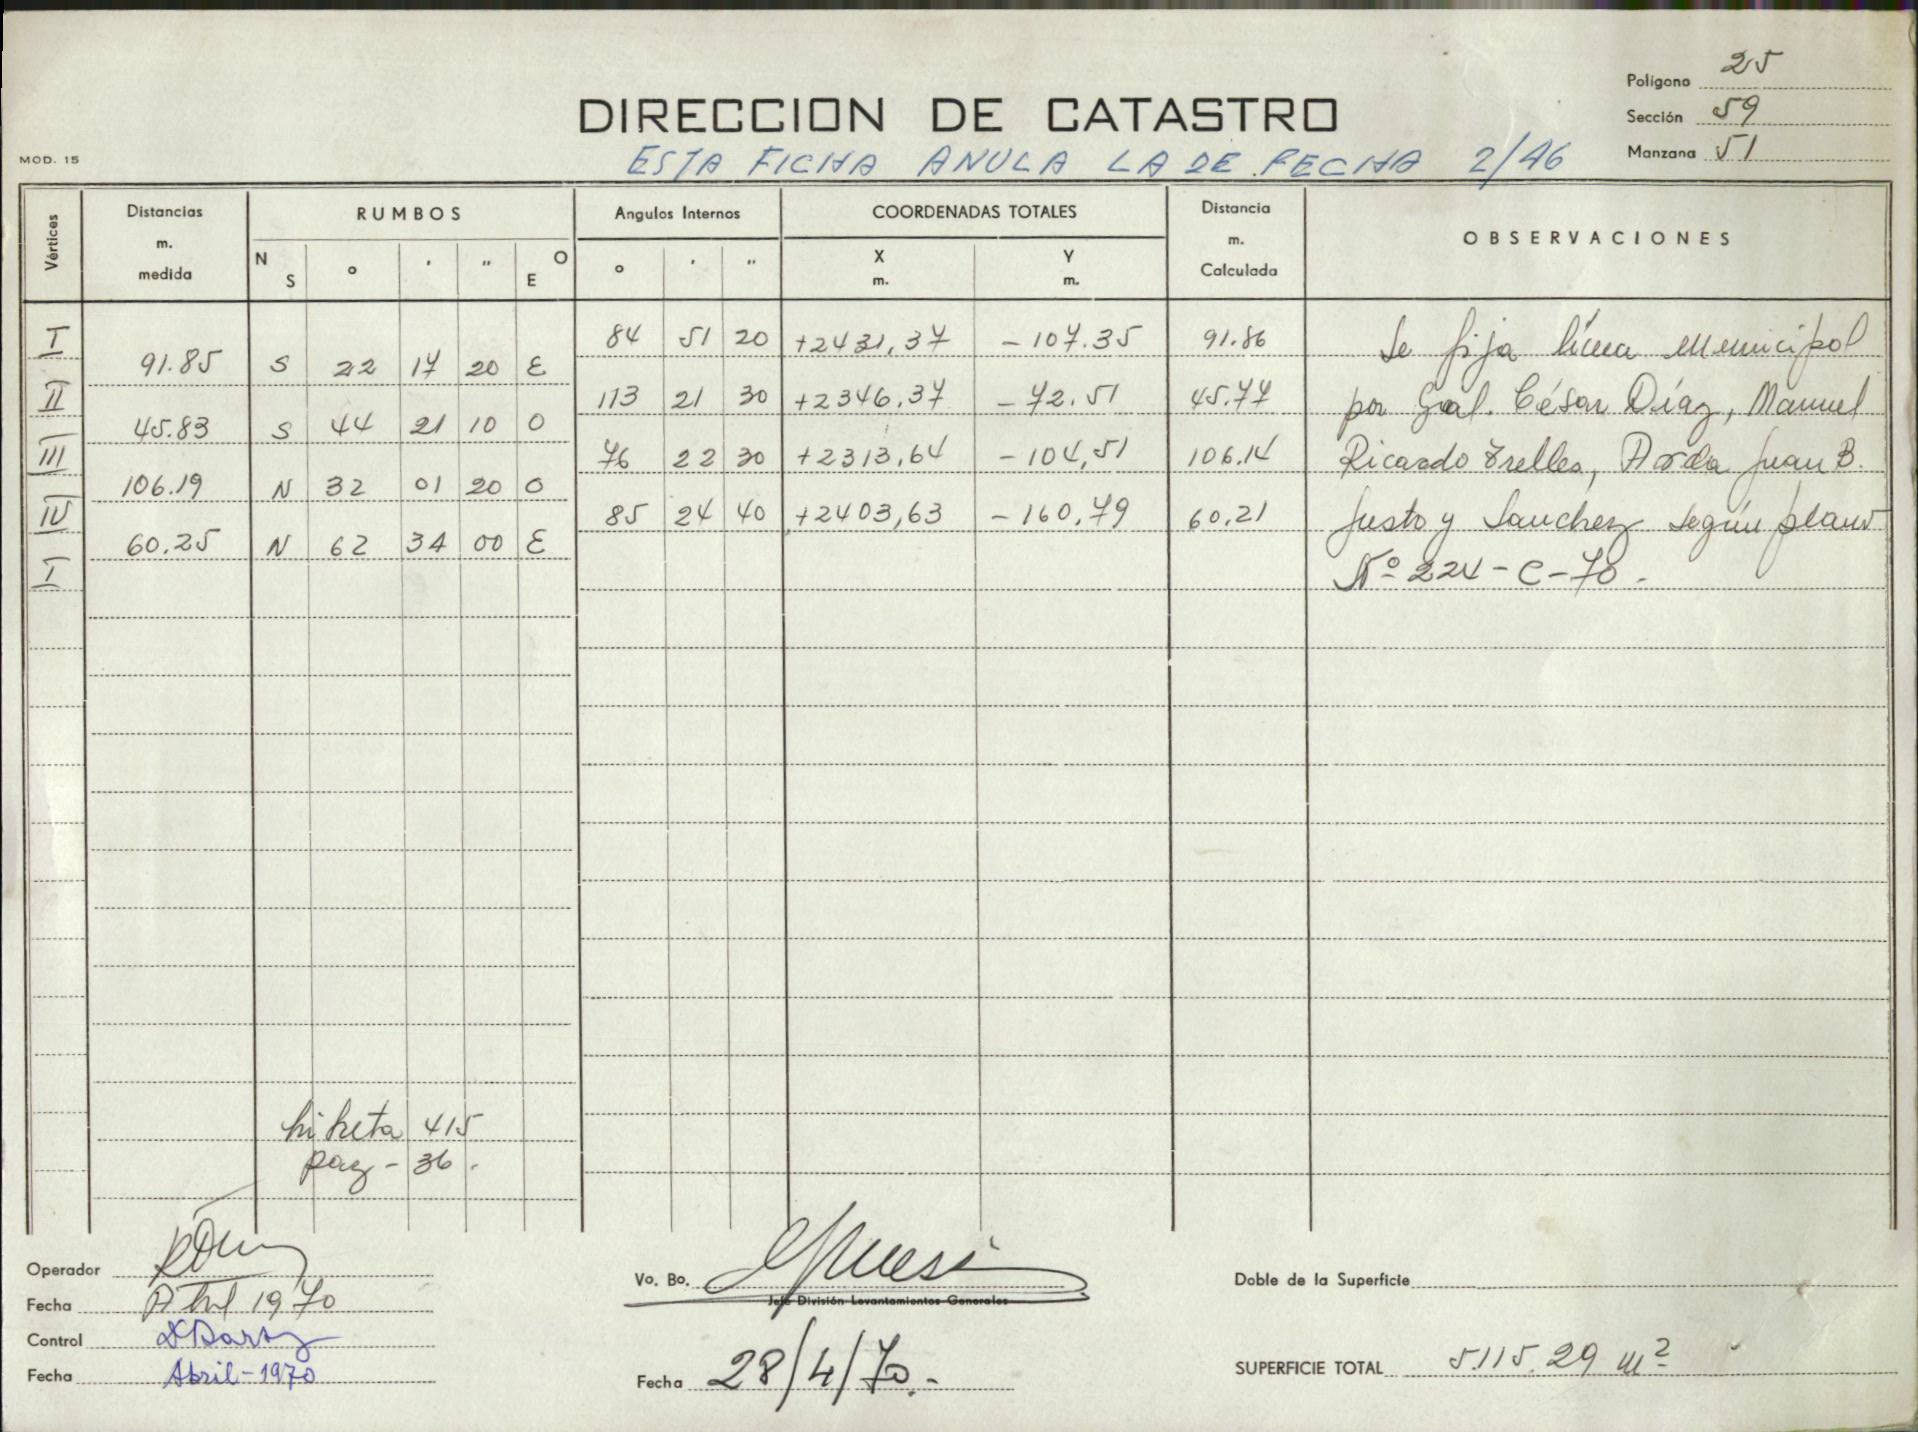 Polígono 25
DIRECCION DE CATASTRO
Sección 59
MOD. 15
ESTA FICHA ANULA LA DE FECHA 2/46
Manzana 51
Vértices Distancias m. medida RUMBOS Angulos Internos COORDENADAS TOTALES Distancia m. Calculada OBSERVACIONES
N S o ' " O E o ' " X m. Y m.
I 84 51 20 +2431,37 -107.35 91.86 Se fija línea Municipal
91.85 S 22 17 20 E
II 113 21 30 +2346,37 -72.51 45.77 por Gral. César Díaz, Manuel
45.83 S 44 21 10 O
III 76 22 30 +2313,64 -104,51 106.14 Ricardo Trelles, Avda Juan B.
106.19 N 32 01 20 O
IV 85 24 40 +2403,63 -160,79 60.21 Justo y Sanchez según plano
60.25 N 62 34 00 E
I Nº 224-C-70.
415
pag - 36.
Operador
Fecha Abril 1970
Control
Fecha Abril-1970
Vo. Bo.
Jefe División Levantamientos Generales
Fecha 28/4/70.-
Doble de la Superficie
SUPERFICIE TOTAL 5.115.29 m²